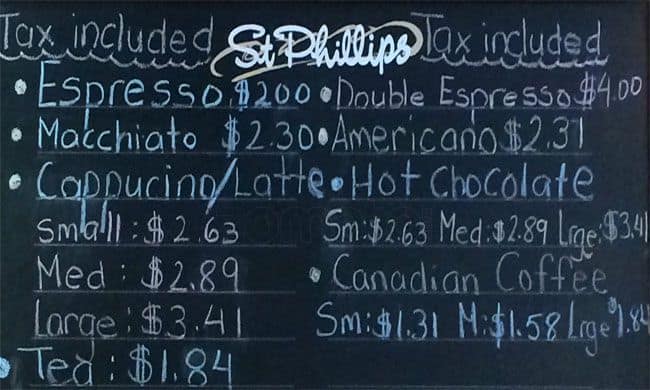 Tax included St Phillips Tax included
• Espresso $200 • Double Espresso $4.00
• Macchiato $2.30 • Americano $2.31
• Cappucino/Latte • Hot Chocolate
Small: $2.63 Sm:$2.63 Med:$2.89 Lrge:$3.41
Med: $2.89 • Canadian Coffee
Large: $3.41 Sm:$1.31 M:$1.58 Lrge $1.84
• Tea: $1.84